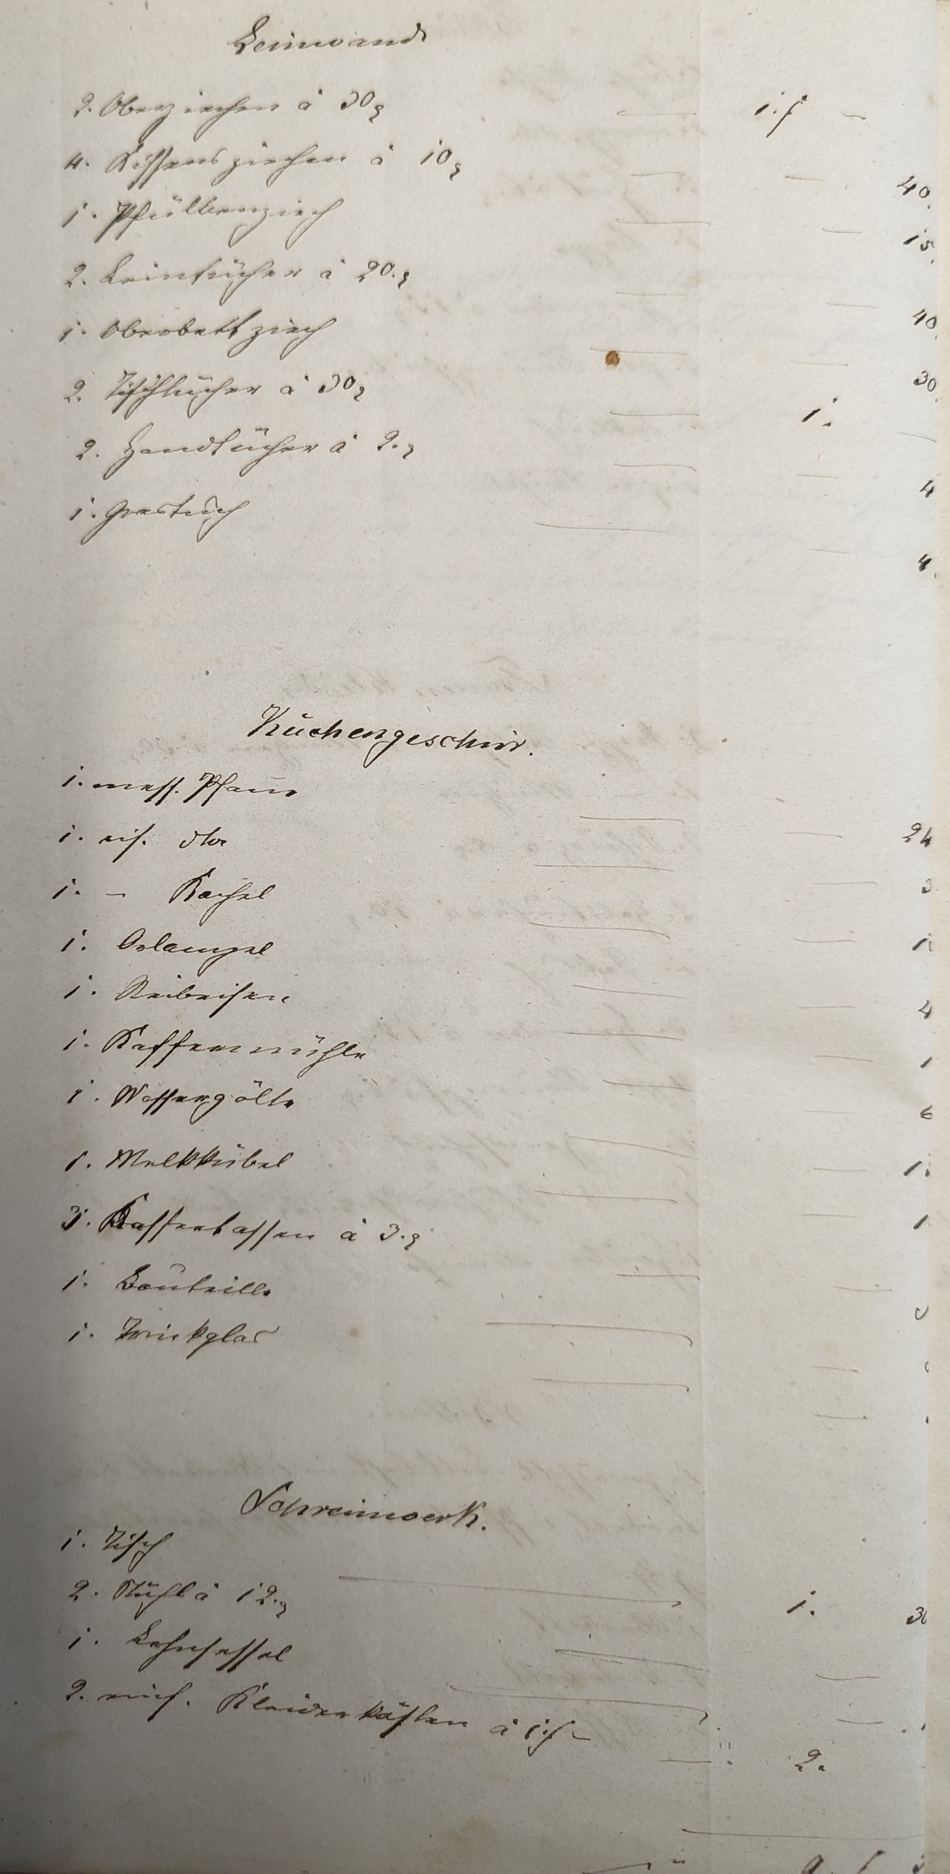 Leinwand
2. Oberziechen à 30 x 1. f —
4. Kissensziechen à 10 x — 40.
1. Pfülbenziech — 15.
2. Leintücher à 20. x — 40.
1. Oberbettziech — 30.
2. Tischtücher à 30 x 1. —
2. Handtücher à 2. x — 4
1. Grastuch — 4.
Küchengeschirr.
1. mess. Pfanne — 24
1. eis. dto —
1. – Kachel —
1. Oelampel — 4
1. Reibeisen —
1. Kaffeemühle — 6
1. Wassergölte —
1. Melkkübel —
3. Kaffeetassen à 3. x —
1. Bouteille —
1. Trinkglas —
Schreinwerk.
1. Tisch 1.
2. Stühl à 12. x —
1. Lehnsessel —
2. Kleiderkästen à 1 f – 2.